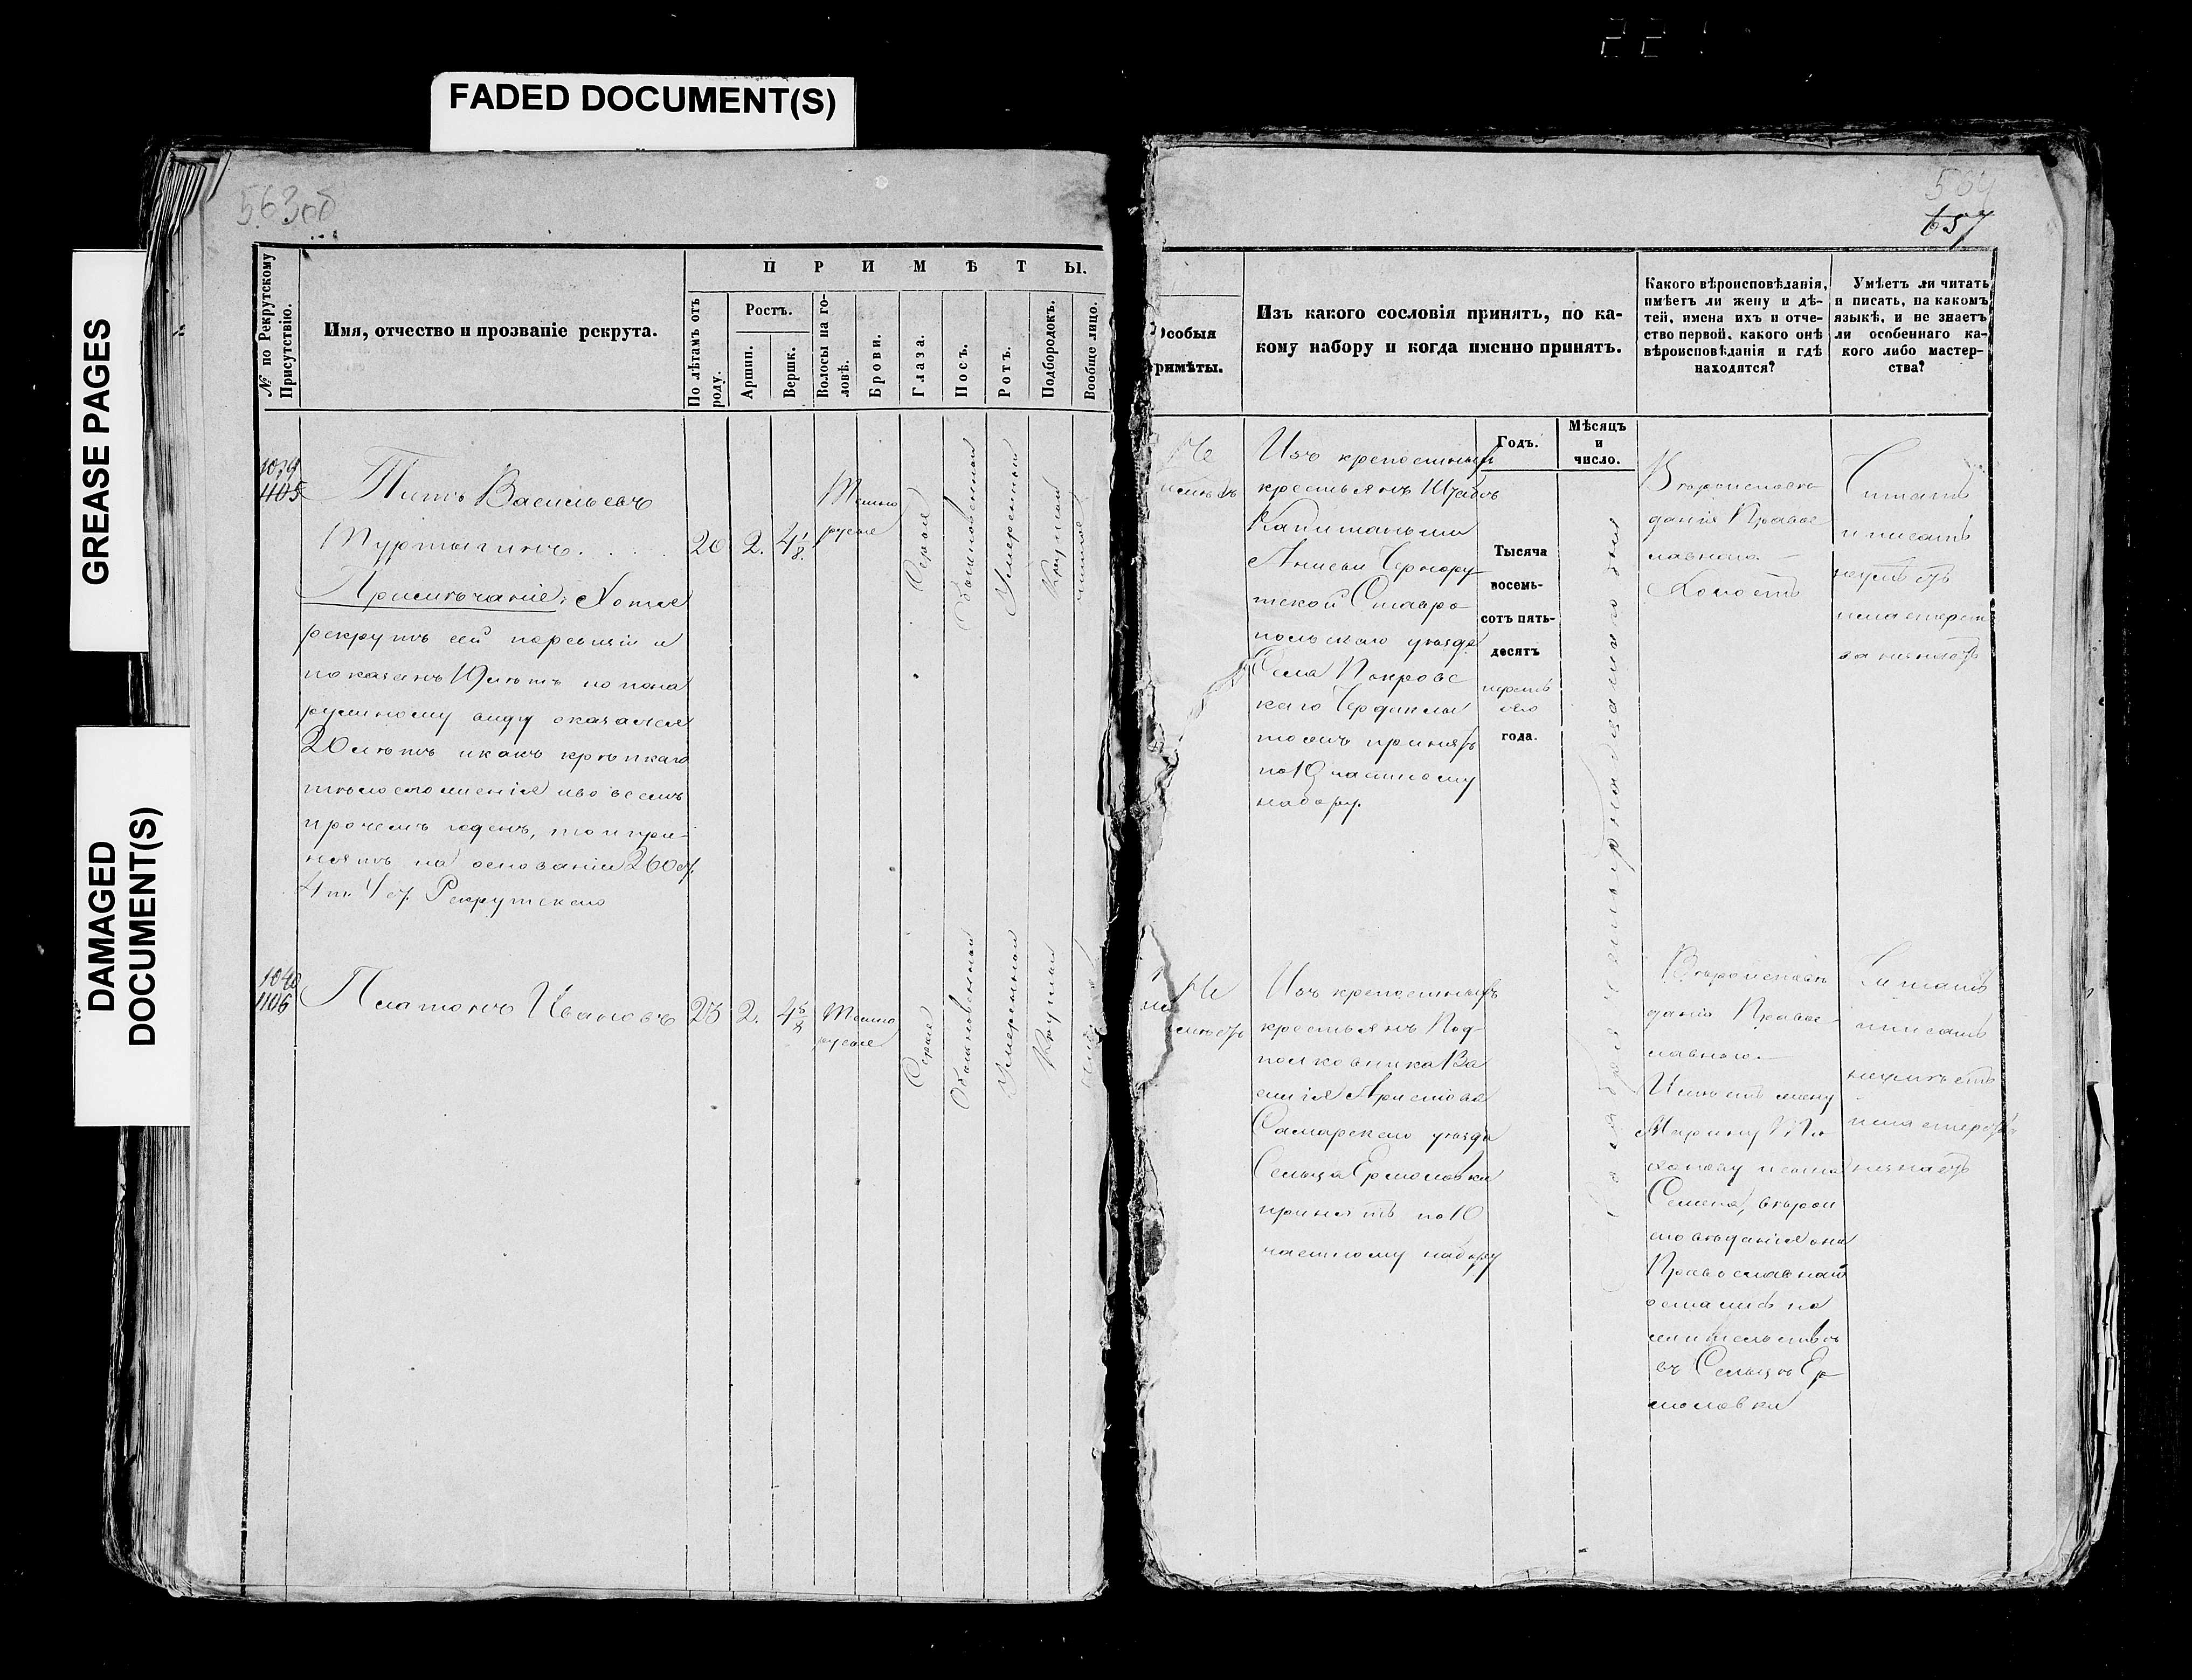 221
FADED DOCUMENT(S)
GREASE PAGES
DAMAGED
DOCUMENT(S)
563об
564
657
№ по Рекрутскому
Присутствію.
Имя, отчество и прозваніе рекрута.
ПРИМѢТЫ.
По лѣтамъ отъ
роду.
Ростъ.
Аршин.
Вершк.
Волосы на го-
ловѣ.
Брови.
Глаза.
Носъ.
Ротъ.
Подбородокъ.
Вообще лицо.
1039
1105
Титъ Васильевъ
Туртыгинъ.
20
2.
4 1/8.
Темно
русые
Сѣрые
Обыкновенный
Умеренный
Круглый
чистое
Примѣчаніе: Хотя
рекрутъ сей по ревизіи и
показанъ 19 лѣтъ но по на
ружному виду оказался
20 лѣтъ и какъ крѣпкаго
тѣлосложенія и во всемъ
прочемъ годенъ, то и при-
нятъ на основаніи 260 ст.
4 т. Уст. Рекрутскаго
1040
1106
Платонъ Ивановъ
23
2.
4 5/8
Темно
русые
Серые
Обыкновенный
Умеренный
Круглый
Особыя
примѣты.
Изъ какого сословія принятъ, по ка-
кому набору и когда именно принятъ.
Какого вѣроисповѣданія,
имѣетъ ли жену и дѣ-
тей, имена ихъ и отче-
ство первой, какого онѣ
вѣроисповѣданія и гдѣ
находятся?
Умѣетъ ли читать
и писать, на какомъ
языкѣ, и не знаетъ
ли особеннаго ка-
кого либо мастер-
ства?
Годъ.
Мѣсяцъ
и
число.
Не
имѣетъ
Изъ крепостныхъ
крестьянъ Штабсъ
Капитанши
Анисьи
Ставро
польскаго уѣзда
Села Покровс
каго Чердаклы
тожъ принятъ
по 10 частному
набору.
Тысяча
восемь-
сотъ пять-
десятъ
первы
ого
года.
Вѣроисповѣ
данія Правос
лавнаго.
Холостъ
Читать
и писать
неумѣетъ
и мастерст
ва незнаетъ
Не
имѣетъ
Изъ крепостныхъ
крестьянъ Под-
полковника Ва
силія Аристова
Самарскаго уѣзда
Сельца Ермоловки
принятъ по 10
частному набору
Вѣроисповѣ
данія Правос-
лавнаго.
Имѣетъ жену
Марину Ти
хонову и сына
Семена, вѣрои
сповѣданія они
Православнаго
остались на
жительствѣ
въ Сельцѣ Ер
моловки
Читать
и писать
неумѣетъ
и мастерства
незнаетъ